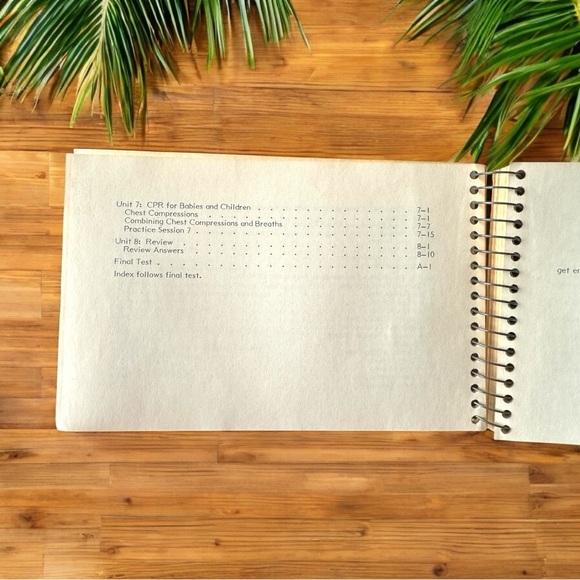 Unit 7: CPR for Babies and Children . . . . . . . . . . . . . 7-1
Chest Compressions . . . . . . . . . . . . . . . . . 7-1
Combining Chest Compressions and Breaths . . . . . . . . . . 7-7
Practice Session 7 . . . . . . . . . . . . . . . . . 7-15
Unit 8: Review . . . . . . . . . . . . . . . . . . 8-1
Review Answers . . . . . . . . . . . . . . . . . . 8-10
Final Test . . . . . . . . . . . . . . . . . . . A-1
Index follows final test.
get